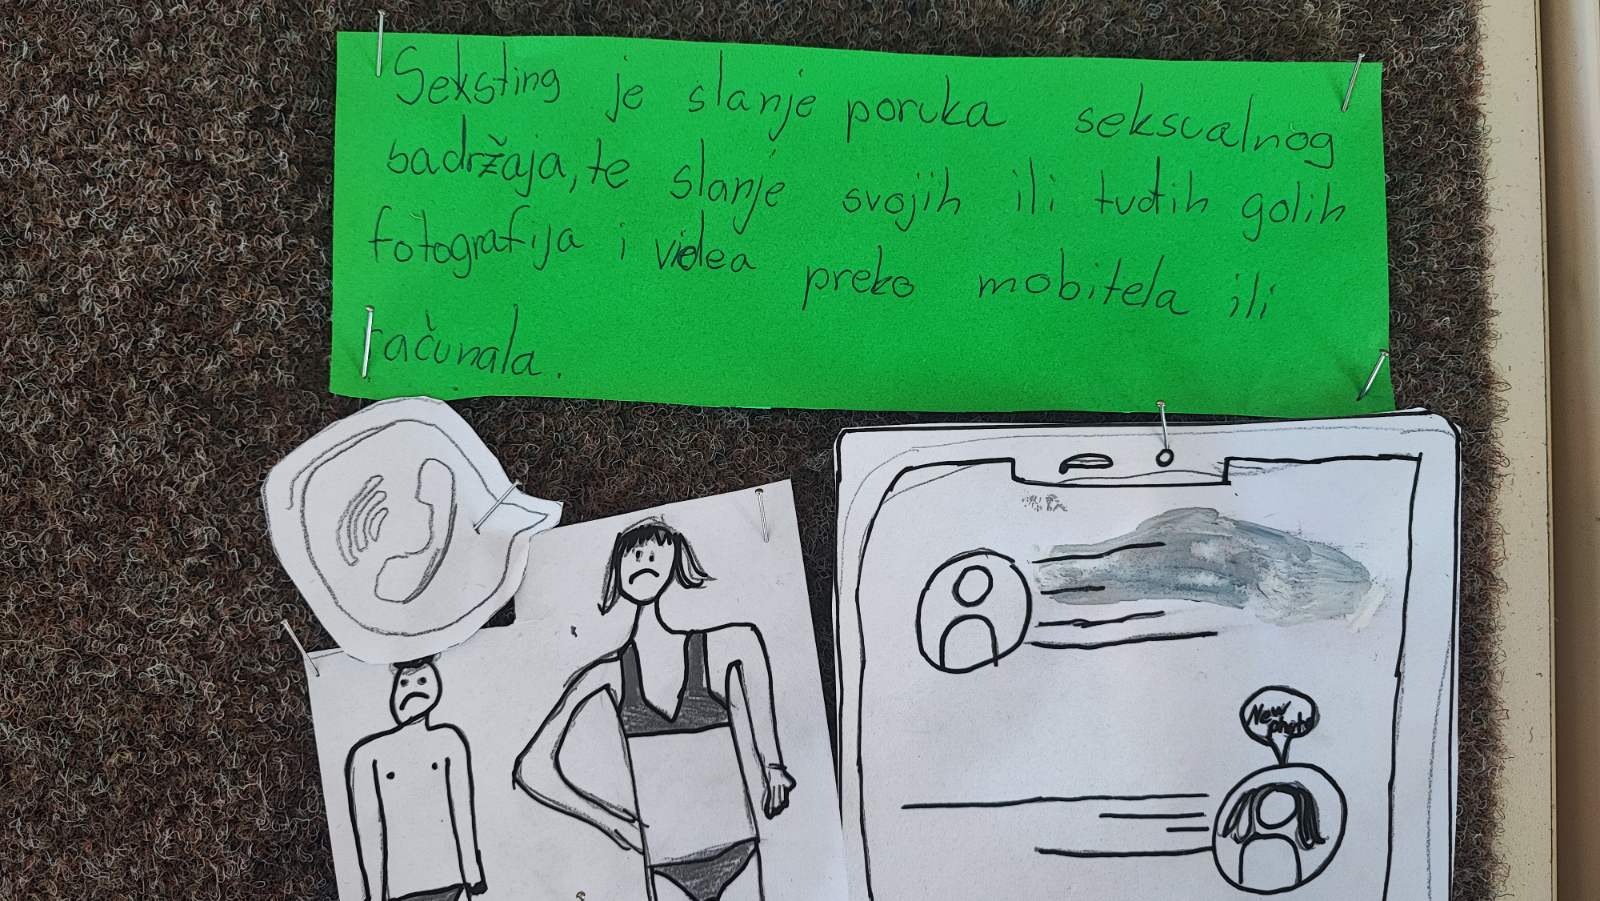 Seksting je slanje poruka seksualnog
sadržaja, te slanje svojih ili tuđih golih
fotografija i videa preko mobitela ili
računala.
New
photo